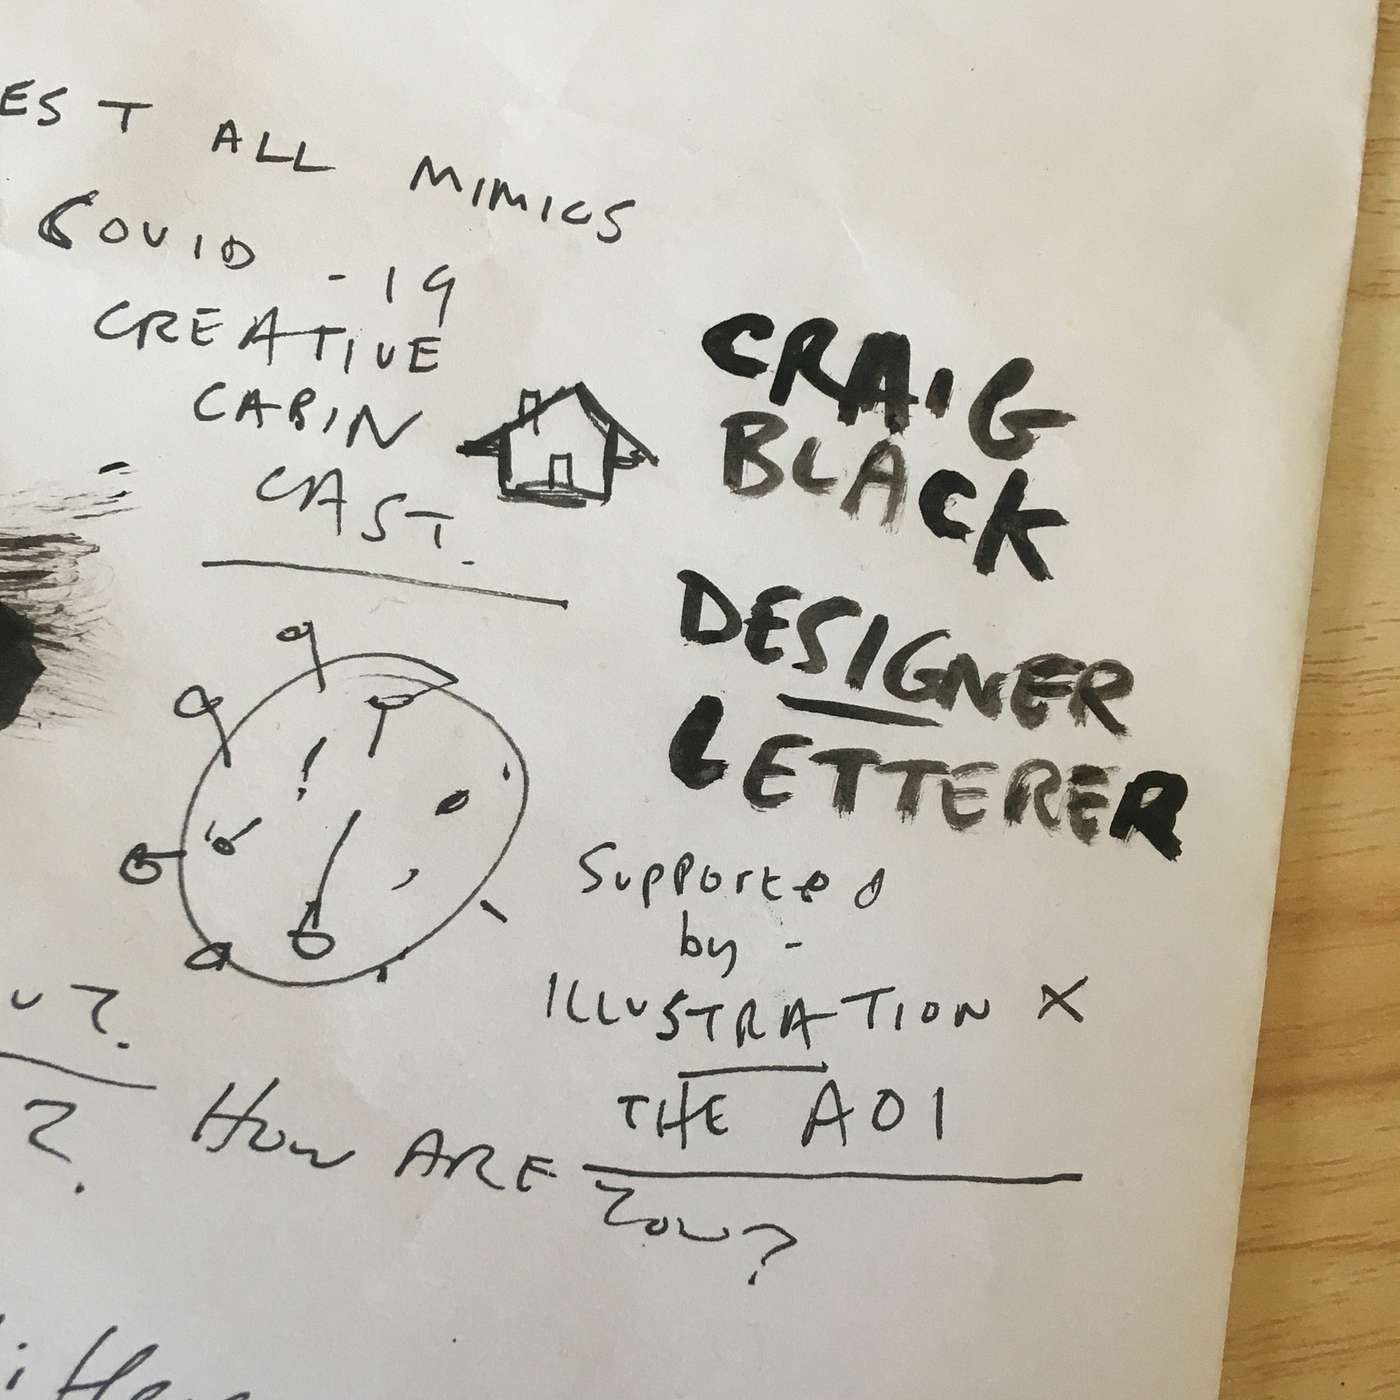 EST ALL MIMICS
COVID -19
CREATIVE
CABIN
CAST.
CRAIG
BLACK
DESIGNER
LETTERER
Supported
by -
ILLUSTRATION X
THE AOI
U?
? HOW ARE
YOU?